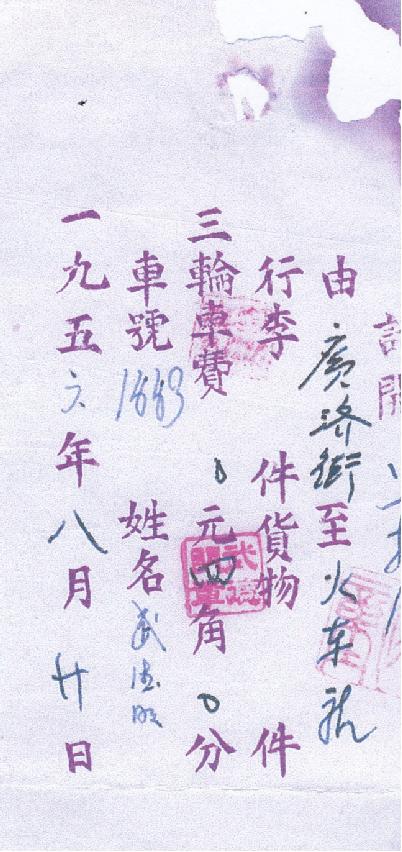 由廣济街至火车站
行李 件貨物 件
三輪車費 0元四角0分
車號1663 姓名武
一九五六年八月廿日